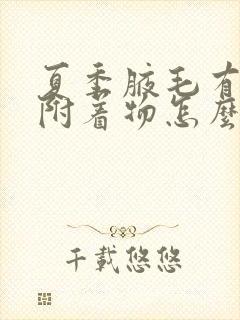 夏季腋毛有
附着物怎麼
千載悠悠